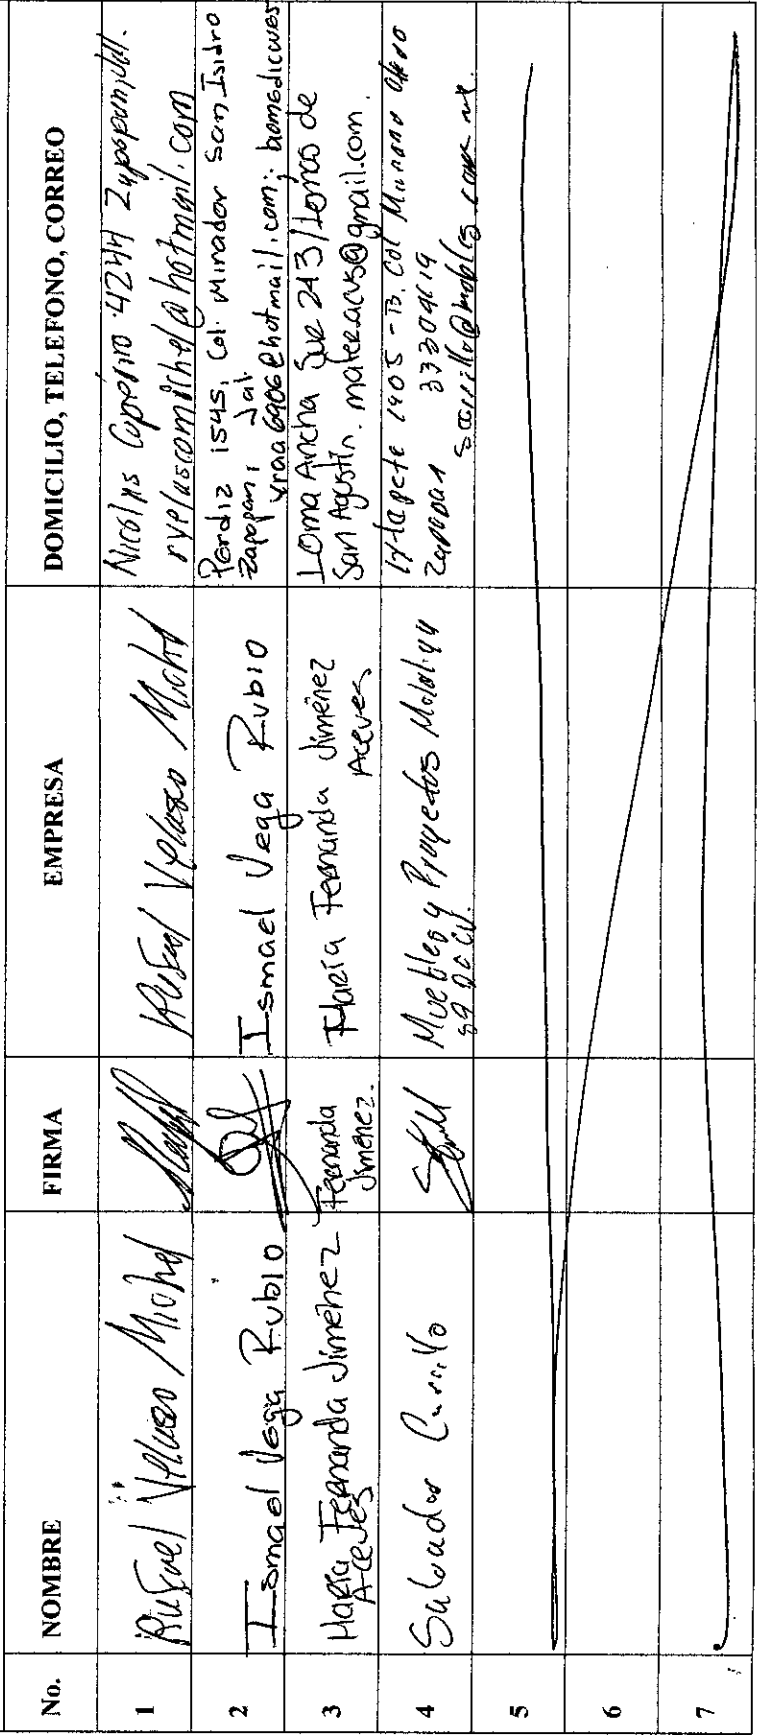 No. NOMBRE FIRMA EMPRESA DOMICILIO, TELEFONO, CORREO
1 Rafael Velasco Michel Rafael Velasco Michel Nicolás Copérnico 4244 Zapopan, Jal.
rvelascomichel@hotmail.com
2 Ismael Vega Rubio Ismael Vega Rubio Perdiz 1545, Col. Mirador San Isidro
Zapopan, Jal.
vraa6906@hotmail.com;
3 María Fernanda Jiménez
Aceves
Fernanda
Jiménez.
María Fernanda Jiménez
Aceves
Loma Ancha Sur 243 / Lomas de
San Agustín. maferacvs@gmail.com.
4 Salvador Carrillo Muebles y Proyectos
SA DE CV.
1405-B. Col
Zapopan
5
6
7